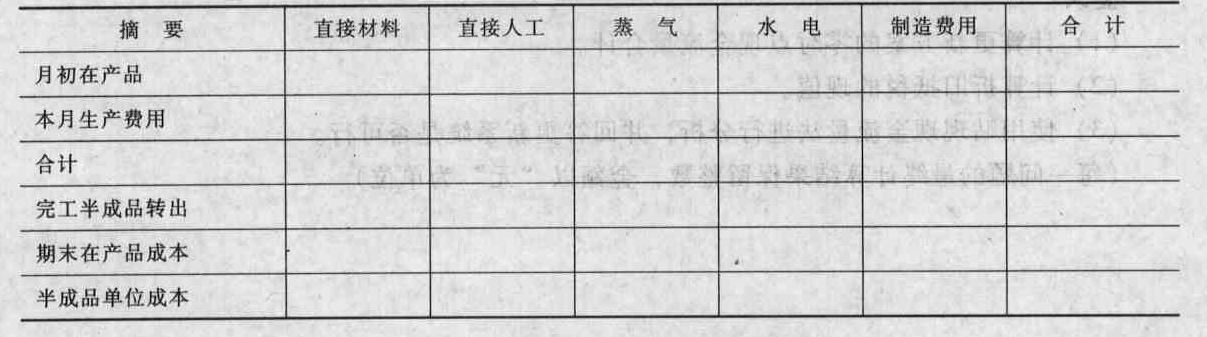 摘 要 直接材料 直接人工 蒸 气 水 电 制造费用 合 计
月初在产品
本月生产费用
合计
完工半成品转出
期末在产品成本
半成品单位成本